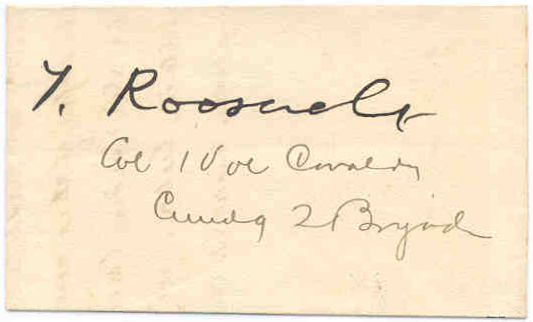 T. Roosevelt
Col 1 Vol Cavalry
Cmdg 2 Brigade